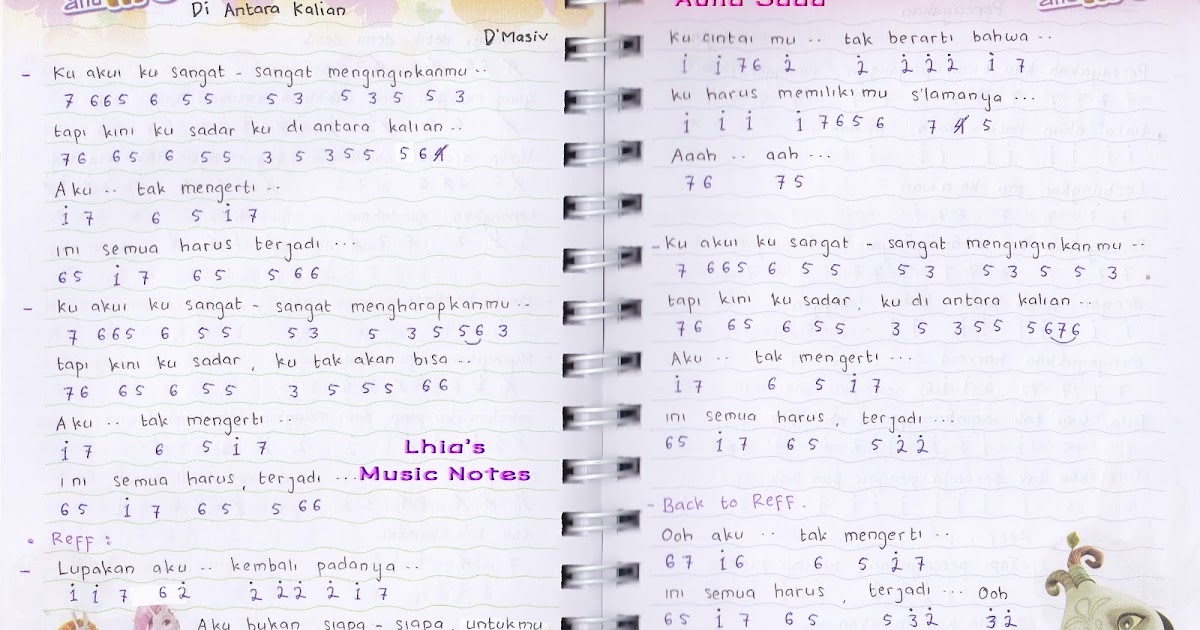 Di Antara Kalian
D'Masiv
- Ku akui ku sangat - sangat menginginkanmu ..
7 665 6 5 5 5 3 5 3 5 5 3
tapi kini ku sadar ku di antara kalian ..
76 65 6 55 3 5 355 56
Aku .. tak mengerti ..
i̇ 7 6 5 i̇ 7
ini semua harus terjadi ...
65 i̇ 7 65 5 66
- Ku akui ku sangat - sangat mengharapkanmu ..
7 665 6 55 53 5 3 5 563
tapi kini ku sadar, ku tak akan bisa ..
76 65 6 55 3 5 55 66
Aku .. tak mengerti ..
i̇ 7 6 5 i̇ 7
ini semua harus, terjadi ...
65 i̇ 7 65 5 66
Lhia's
Music Notes
• Reff :
- Lupakan aku .. kembali padanya ..
i̇ i̇ 7 6 2̇ 2̇ 2̇2̇ 2̇ i̇ 7
Aku bukan siapa - siapa, untukmu
Ku cintai mu .. tak berarti bahwa ..
i̇ i̇ 76 2̇ 2̇ 2̇ 2̇ 2̇ i̇ 7
ku harus memiliki mu s'lamanya ...
i̇ i̇ i̇ i̇ 7656 7 5
Aaah .. aah ...
76 75
- Ku akui ku sangat - sangat menginginkan mu ..
7 665 6 5 5 5 3 5 3 5 5 3
tapi kini ku sadar, ku di antara kalian ..
76 65 6 55 3 5 355 5676
Aku .. tak mengerti ...
i̇ 7 6 5 i̇ 7
ini semua harus, terjadi ...
65 i̇ 7 65 5 2̇ 2̇
- Back to Reff.
Ooh aku .. tak mengerti ..
67 i̇6 6 5 2̇ 7
ini semua harus, terjadi ... Ooh
65 i̇ 7 65 5 3̇2̇ 3̇2̇